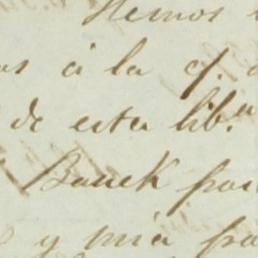 Hemos
á la c/.
de esta lib.ª
Bauck para
y mia